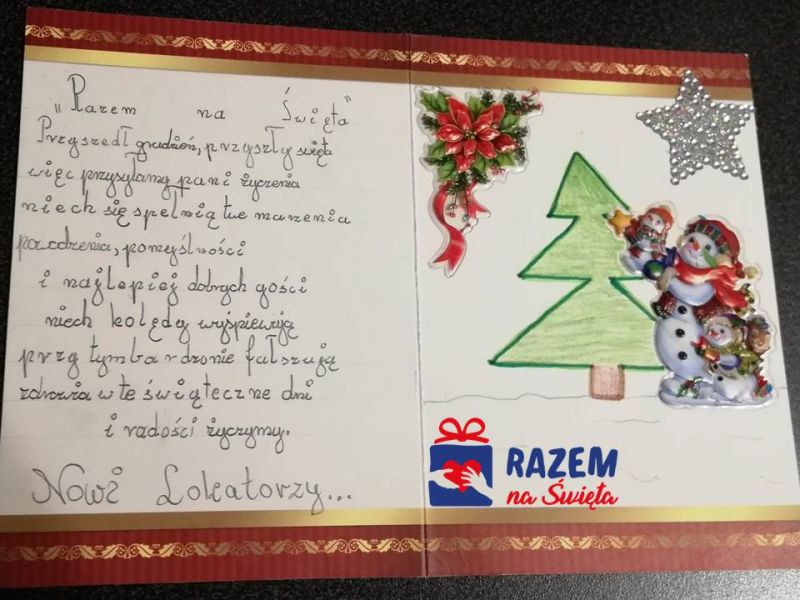 „Razem na Święta”
Przyszedł grudzień, przyszły święta
więc przysyłamy pani życzenia
niech się spełnią twe marzenia
powodzenia, pomyślności
i najlepiej dobrych gości
niech kolędy wyśpiewują
przy tym bardzo nie fałszują
zdrowia w te świąteczne dni
i radości życzymy.
Nowi Lokatorzy...
RAZEM
na Święta